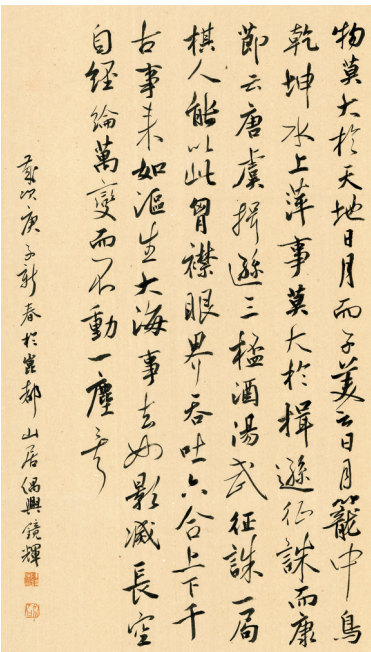 物莫大於天地日月而子美云日月籠中鳥
乾坤水上萍事莫大於揖遜征誅而康
節云唐虞揖遜三桮酒湯武征誅一局
棋人能以此胷襟眼界吞吐六合上下千
古事來如漚生大海事去如影滅長空
自經綸萬變而不動一塵矣
歲次庚子新春於都山居偶興鏡輝